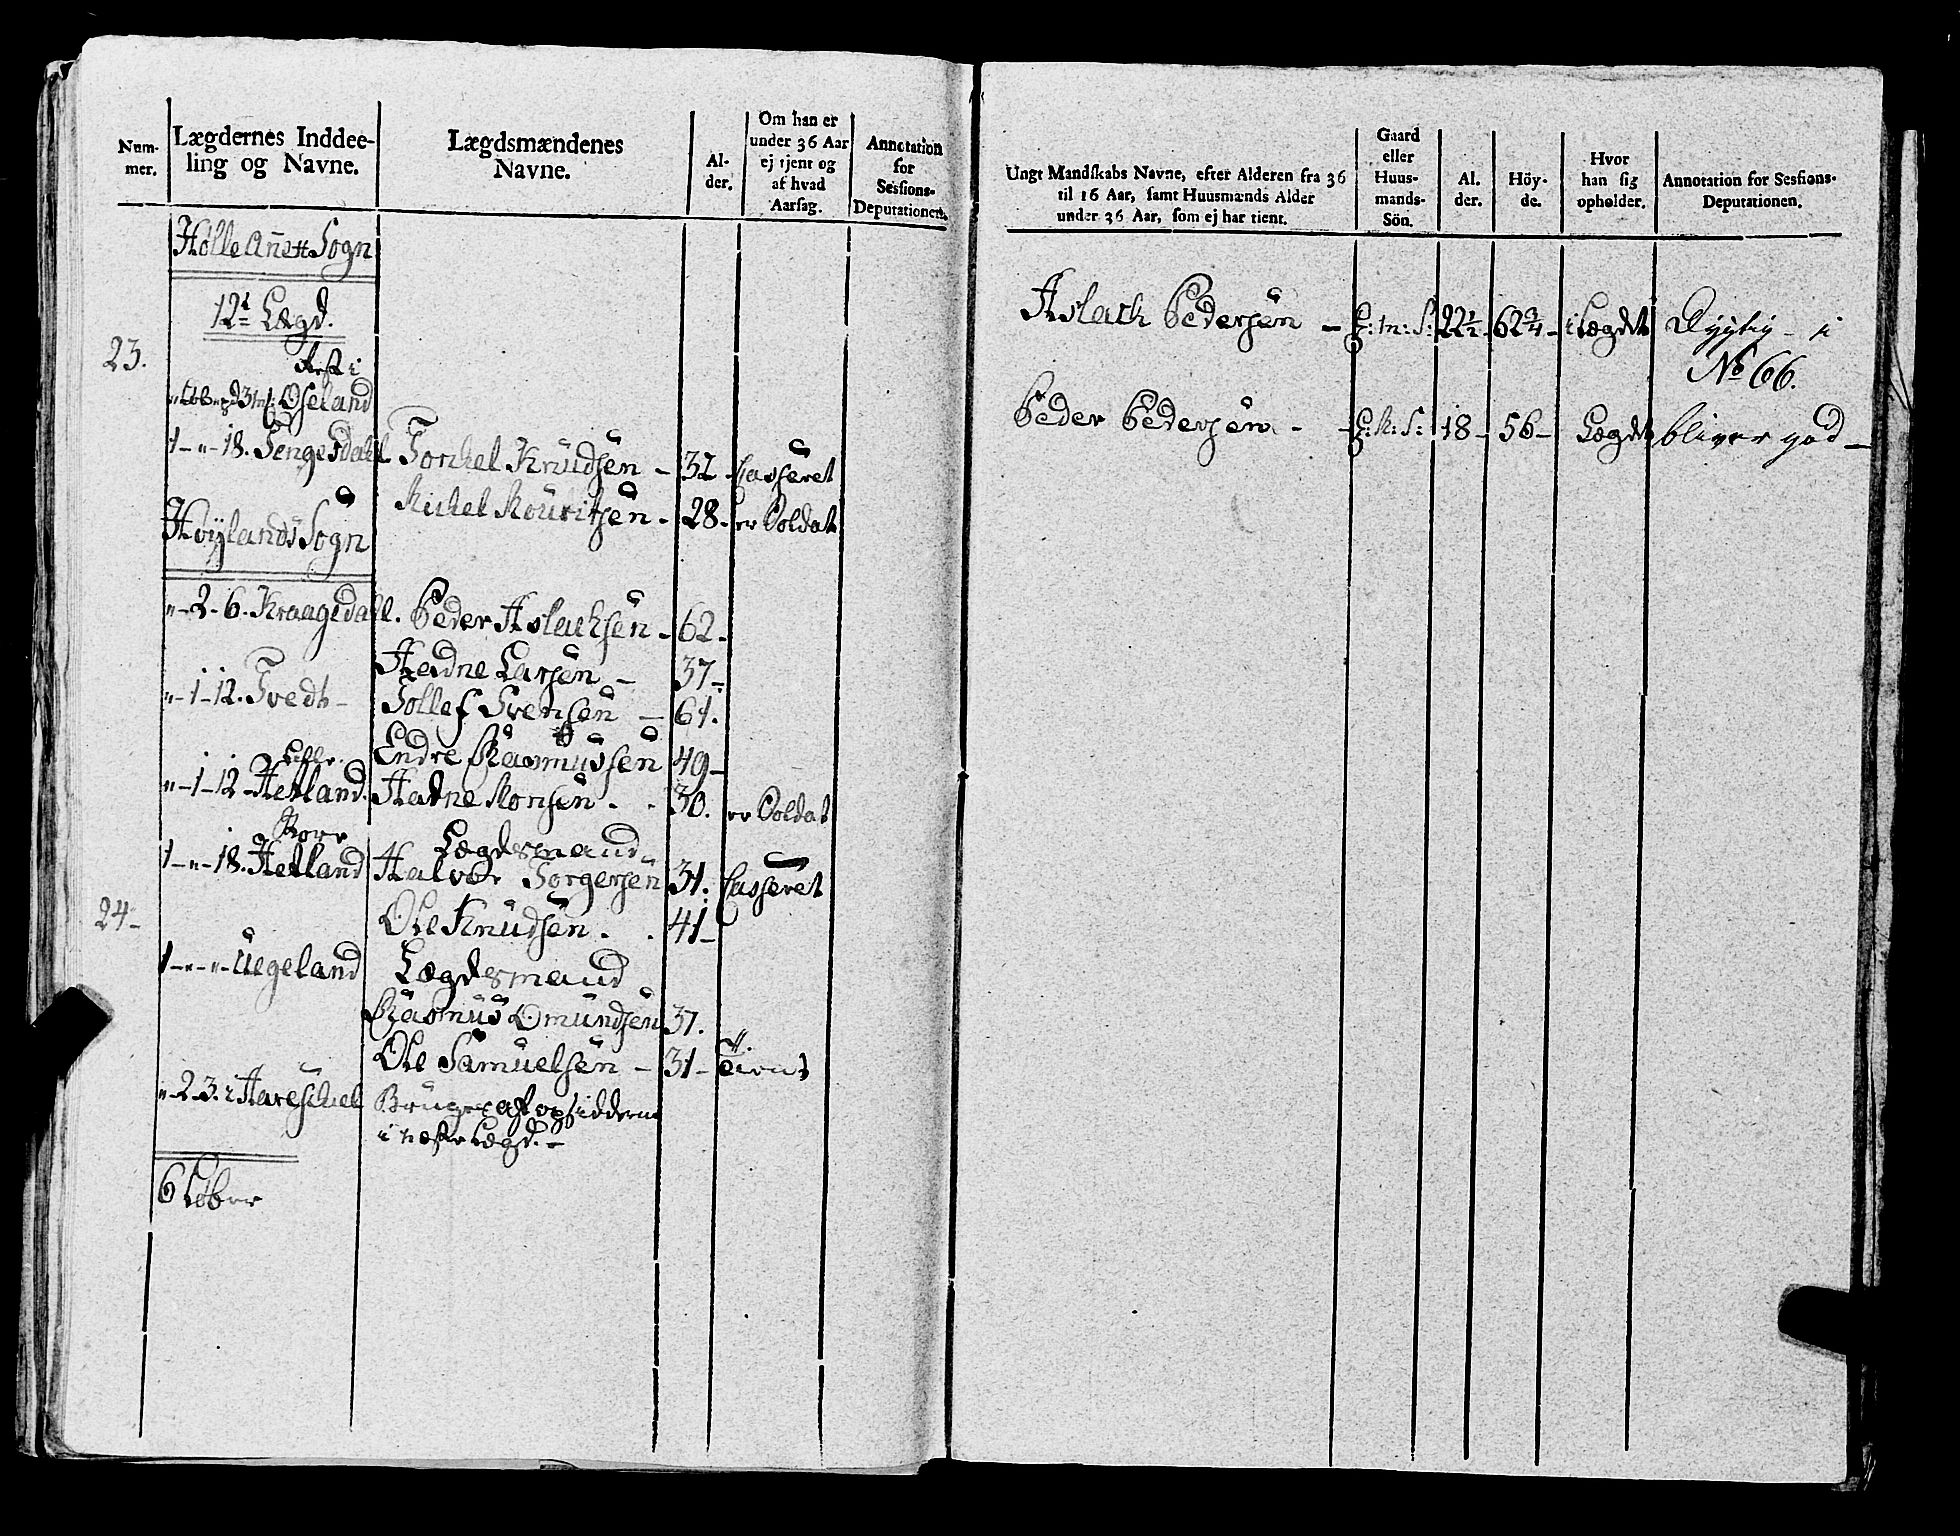 Num-
mer.
Lægdernes Inddee-
ling og Navne.
Lægdsmændenes
Navne.
Al-
der.
Om han er
under 36 Aar
ej tjent og
af hvad
Aarsag.
Annotation
for
Sessions-
Deputationen.
Holle Sogn
12te Lægd.
23.
Rest i
Oseland
1 - " - 18. Tengesdahl Torkel Knudsen - 32 - Casseret
Mickel Mouritsen - 28 - er Soldat
Høylands Sogn
" - 2 - 6. Kraagedahl. Peder Aslachsen - 62 -
Aadne Larsen - 37 -
" - 1 - 12. Tvedt - Tollef Svensen - 61.
Endre Rasmussen 49 -
Lille
" - 1 - 12 - Hetland. Aadne Monsen . . 30. er Soldat
Store
Lægdsmand
1 - " - 18. Hetland Halvor Torgersen 31. Casseret
24 -
Ole Knudsen . . 41 -
1 - " - " - Uegeland Lægdsmand
Rasmus Omundsen 37.
Ole Samuelsen - 31 - Tient
" - 2 - 3. i Hareschel Bruges af opsidderne
i næste Lægd. -
6 Løber
Ungt Mandskabs Navne, efter Alderen fra 36
til 16 Aar, samt Huusmænds Alder
under 36 Aar, som ej har tient.
Gaard
eller
Huus-
mands-
Sön.
Al.
der.
Höy-
de.
Hvor
han sig
opholder.
Annotation for Sessions-
Deputationen.
Aslach Pedersen - G: m: S: 22 1/2 - 62 3/4 - i Lægdet Dygtig - i
No 66.
Peder Pedersen - - G: M: S: 18 - 56 - Lægdet bliver god -